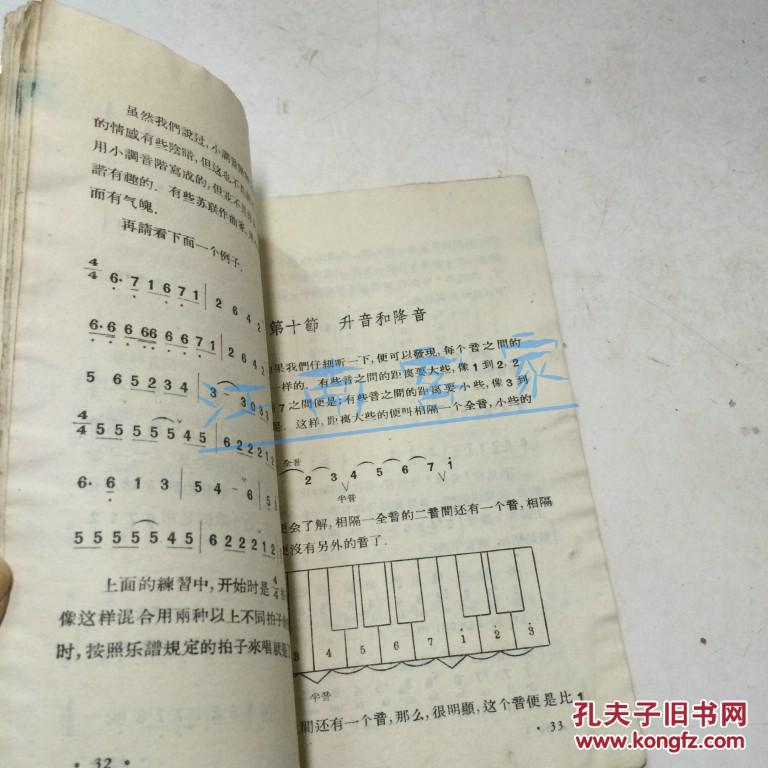 虽然我們說过,小調音階
的情感有些陰暗,但这也不
用小調音階寫成的,但並不是
諧有趣的.有些苏联作曲家,
而有气魄.
再請看下面一个例子.
4/4 6·71671|2642
6·66666671|2642
5 65234|3-3033
4/4 5555545|622221
6·613|54-6|
5555545|622221
上面的練習中,开始时是4/4
像这样混合用兩种以上不同拍子
时,按照乐譜規定的拍子來唱就是
· 32 ·
第十節 升音和降音
果我們仔細听一下,便可以發現,每个音之間的
一样的.有些音之間的距离要大些,像1到2,2
7之間便是;有些音之間的距离要小些,像3到
是.这样,距离大些的便叫相隔一个全音,小些的
全音
2 3 4 5 6 7 i
半音
更会了解,相隔一全音的二音間还有一个音,相隔
便沒有另外的音了.
3 4 5 6 7 1 2 3
半音
間还有一个音,那么,很明顯,这个音便是比1
· 33
江南书家
孔夫子旧书网
www.kongfz.com